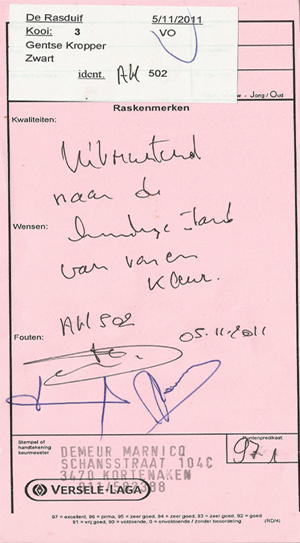 De Rasduif 5/11/2011
Kooi: 3 VO
Gentse Kropper
Zwart
ident. AH 502
- Jong / Oud
Raskenmerken
Kwaliteiten:
Uitmuntend
naar de
Wensen: huidige stand
van
kleur.
AH 502
Fouten: 05-11-2011
Stempel of
handtekening
keurmeester
DEMEUR MARNICQ
SCHANSSTRAAT 104C
3470 KORTENAKEN
Puntenpredikaat
97
VERSELE-LAGA
97 = excellent, 96 = prima, 95 = zeer goed, 94 = zeer goed, 93 = zeer goed, 92 = zeer goed
91 = vrij goed, 90 = voldoende, 0 = onvoldoende / zonder beoordeling (RD/4)